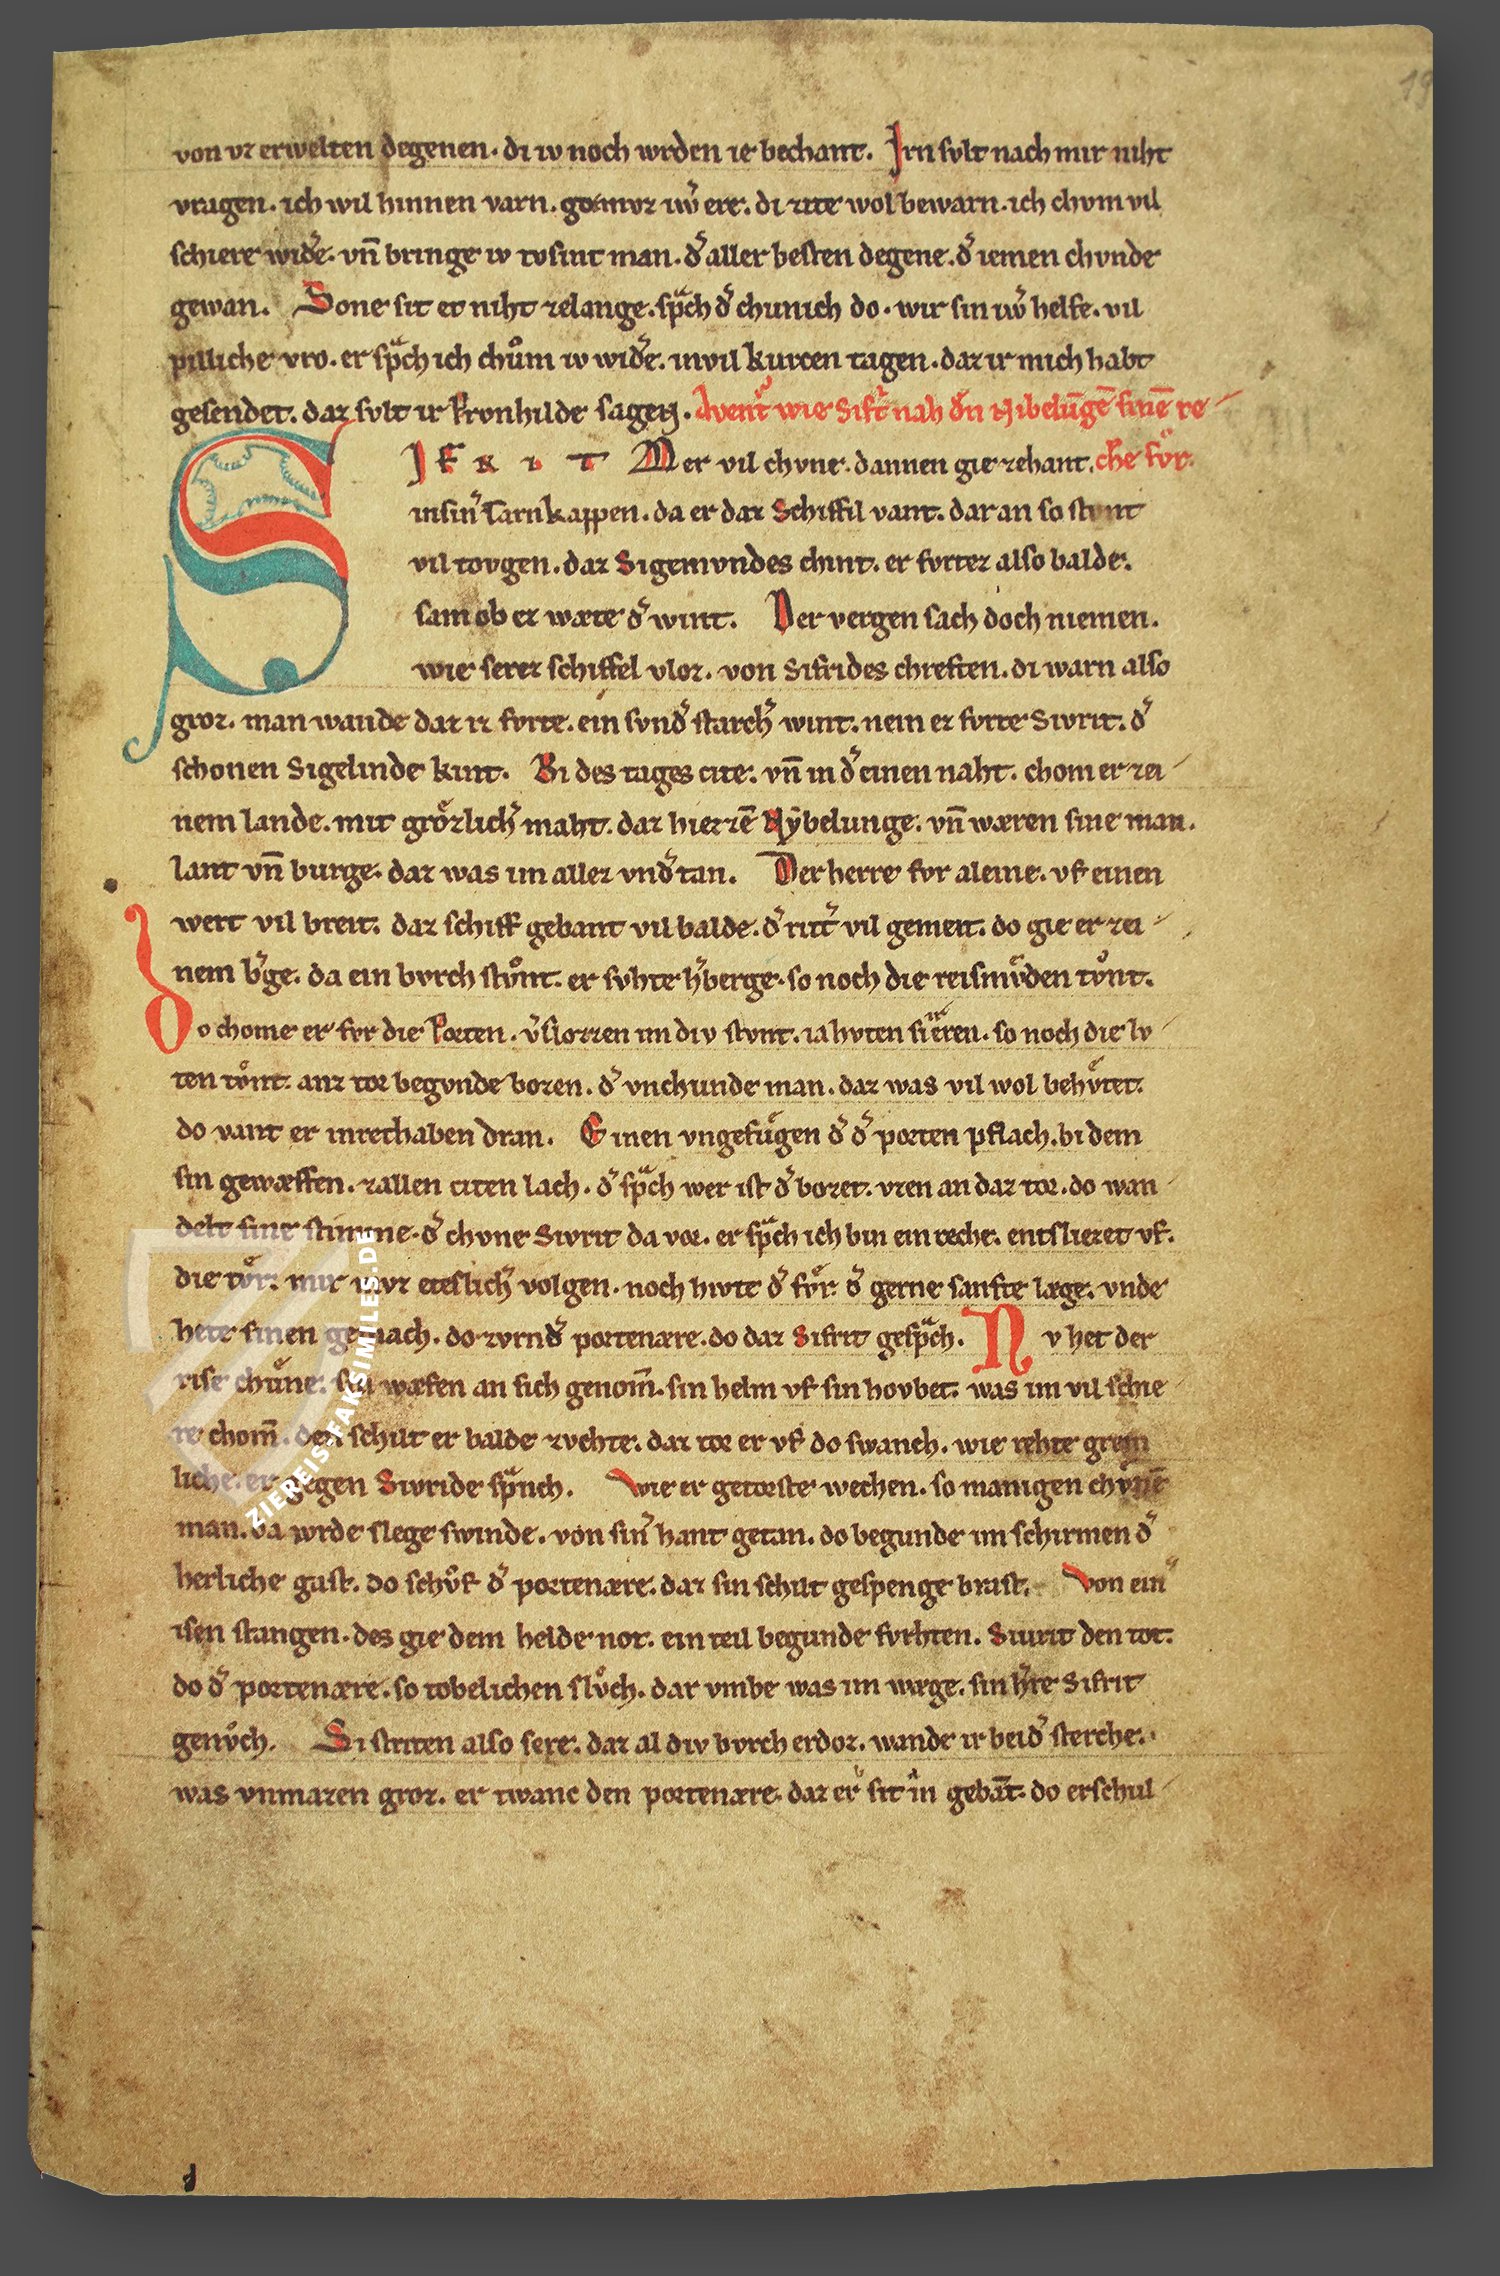 19
von vz erwelten degenen. di iv noch wrden ie bechant. Irn svlt nach mir niht
vragen. ich wil hinnen varn. got mvz iw͛ ere. di zite wol bewarn. ich chvm vil
schiere wid͛e. vn̄ bringe iv tvsint man. d͛ aller besten degene. d͛ iemen chvnde
gewan. Sone sit et niht zelange. spͣch d͛ chunich do. wir sin iw͛ helfe. vil
pilliche vro. er spͣch ich chům iv wid͛e. invil kurcen tagen. daz ir mich habt
gesendet. daz svlt ir Prvnhilde sagen. Avent̾ wie Sif͛t nah d͛n Nibelūgē sinē re
che fůr.
SIFRIT Der vil chvne. dannen gie zehant.
insin͛ Tarnkappen. da er daz Schiffil vant. dar an so stvnt
vil tovgen. daz Sigemvndes chint. er fvrtez also balde.
sam ob ez wæte d͛ wint. Der vergen sach doch niemen.
wie serez schiffel vloz. von Sifrides chreften. di warn also
groz. man wande daz iz fvrte. ein svnd͛ starch͛ wint. nein ez fvrte Sivrit. d͛
schonen Sigelinde kint. Bi des tages cite. vn̄ in d͛ einen naht. chom er zei
nem lande. mit grőzlich͛ maht. daz hiezzē Nẏbelunge. vn̄ wæren sine man.
lant vn̄ burge. daz was im allez vnd͛ tan. Der herre fvr aleine. vf einen
wert vil breit. daz schiff gebant vil balde. d͛ rit͛ vil gemeit. do gie er zei
nem b͛ge. da ein bvrch stůnt. er svhte h͛berge. so noch die reismůden tůnt.
Do chome er fvr die Porten. v͛slozzen im div stvnt. ia hvten si ir eren. so noch die lv
ten tůnt. anz tor begvnde bozen. d͛ vnchunde man. daz was vil wol behůtet.
do vant er inrethaben dran. Einen vngefůgen d͛ d͛ porten pflach. bi dem
sin gewæffen. zallen citen lach. d͛ spͣch wer ist d͛ bozet. vzen an daz tor. do wan
delt sine stimme. d͛ chvne Sivrit da vor. er spͣch ich bin ein reche. entsliezet vf.
die tůr. mir ivz eteslich͛ volgen. noch hivte d͛ fůr. d͛ gerne sanfte læge. vnde
hete sinen gemach. do zvrnd͛ portenære. do daz Sifrit gespͣch. Nv het der
rise chůne. sin wæfen an sich genom̄. sin helm vf sin hovbet. was im vil schie
re chom̄. den schilt er balde zvchte. daz tor er vf do swanch. wie rehte grem
liche. er gegen Sivride spͣnch. Wie er getorste wechen. so manigen chvnē
man. da wrde slege swinde. von sin͛ hant getan. do begunde im schirmen d͛
herliche gast. do schůf d͛ portenære. daz sin schilt gespenge brast. Von ein͛
isen stangen. des gie dem helde not. ein teil begunde fvrhten. Sivrit den tot.
do d͛ portenære. so tobelichen slůch. dar vmbe was im wæge. sin h͛re Sifrit
genůch. Si striten also sere. daz al div bvrch erdoz. wande ir beid͛ sterche.
was vnmazen groz. er twanc den portenære. daz er sit in gebāt. do erschul
ZIEREIS-FAKSIMILES.DE